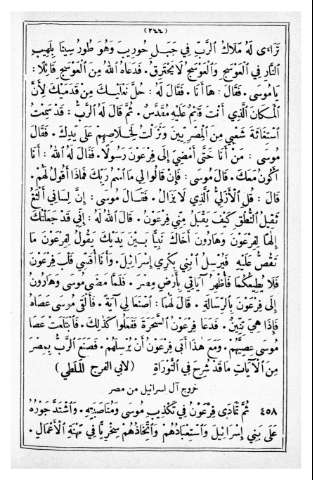 (٢٤٤)
تراءى له ملاك الرب في جبل حوريب وهو طور سينا بلهيب
النار في العوسج والعوسج لا يحترق. فدعاه الله من العوسج قائلا:
يا موسى. فقال: ها أنا. فقال له: خل نعليك من قدميك لأن
المكان الذي أنت قائم عليه مقدس. ثم قال له الرب: قد سمعت
استغاثة شعبي من المصريين ونزلت لخلاصهم على يديك. فقال
موسى: من أنا حتى أمضي إلى فرعون رسولا. فقال له الله: أنا
أكون معك. قال موسى: فإن قالوا لي ما اسم ربك فماذا أقول لهم.
قال: قل الأزلي الذي لا يزال. فقال موسى: إن لساني ألثغ
ثقيل النطق كيف يقبل مني فرعون. قال الله له: إني قد جعلتك
إلها لفرعون وهارون أخاك نبيا بين يديك يقول لفرعون ما
تقص عليه فيرسل ابني بكري إسرائيل. وأنا أقسي قلب فرعون
فلا يطيعكما فأظهر آياتي بأرض مصر. فلما مضى موسى وهارون
إلى فرعون بالرسالة. قال لهما: اصنعا لي آية. فألقى موسى عصاه
فإذا هي تنين. فدعا فرعون السحرة ففعلوا كذلك. فابتلعت عصا
موسى عصيهم. ومع هذا أبى فرعون أن يرسلهم. فصنع الرب بمصر
من الآيات ما قد شرح في التوراة (لأبي الفرج الملطي)
خروج آل اسرائيل من مصر
٤٥٨ ثم تمادى فرعون في تكذيب موسى ومناصبته. واشتد جوره
على بني إسرائيل واستعبادهم واتخاذهم سخريا في مهنة الأعمال.